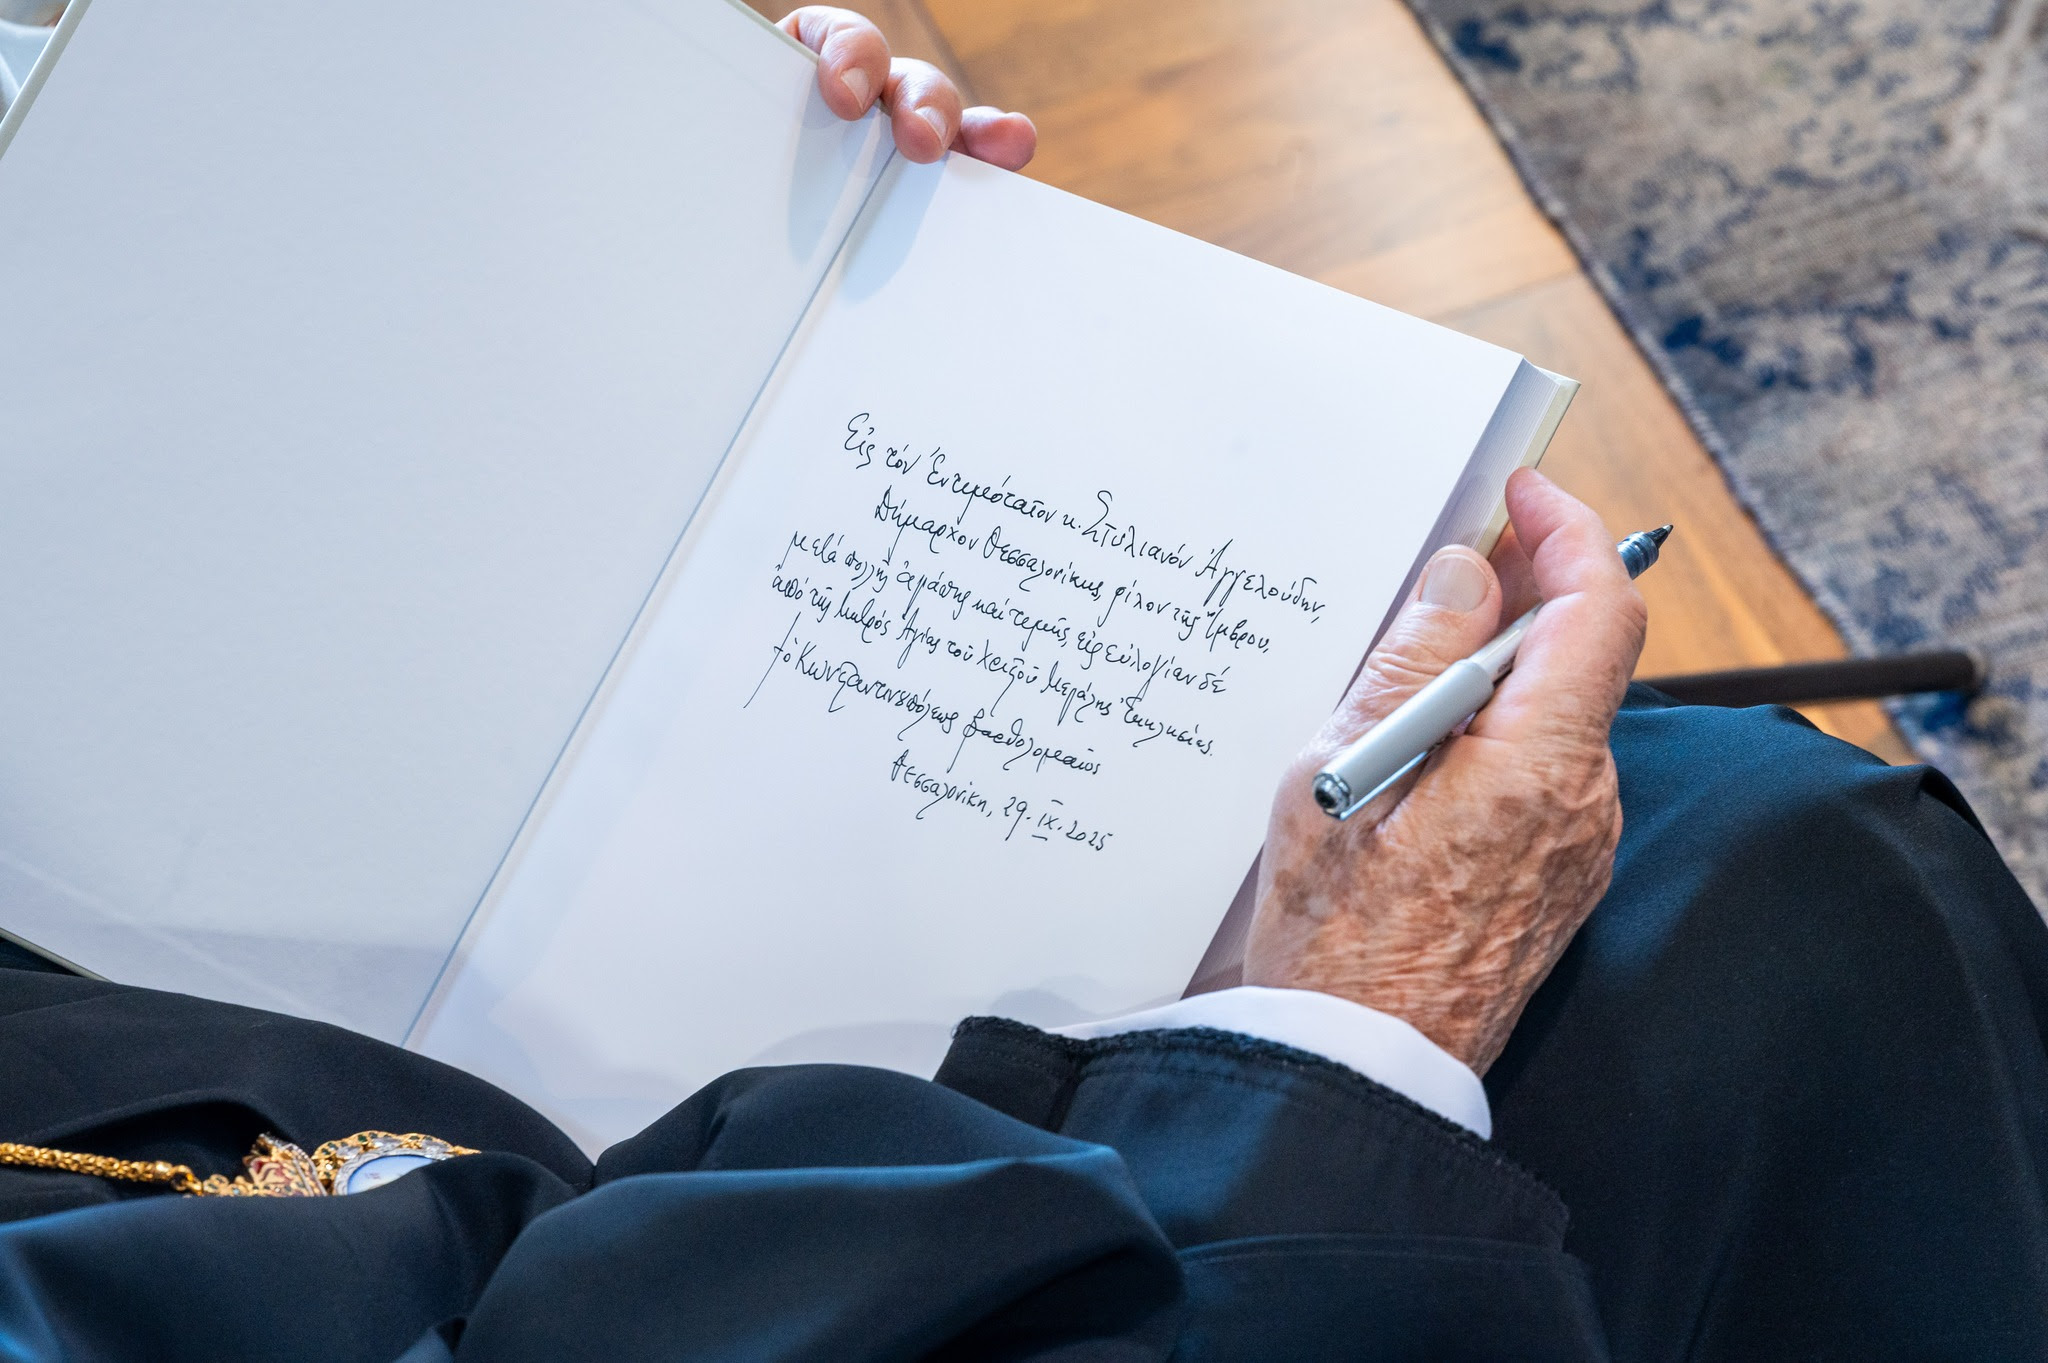 Εἰς τόν Ἐντιμότατον κ. Στυλιανόν Ἀγγελούδην,
Δήμαρχον Θεσσαλονίκης, φίλον τῆς Ἴμβρου,
μετά πολλῆς ἀγάπης καί τιμῆς, εἰς εὐλογίαν δέ
ἀπό τῆς Μητρός Ἁγίας τοῦ Χριστοῦ Μεγάλης Ἐκκλησίας.
† ὁ Κωνσταντινουπόλεως Βαρθολομαῖος
Θεσσαλονίκη, 29. ΙΧ. 2025